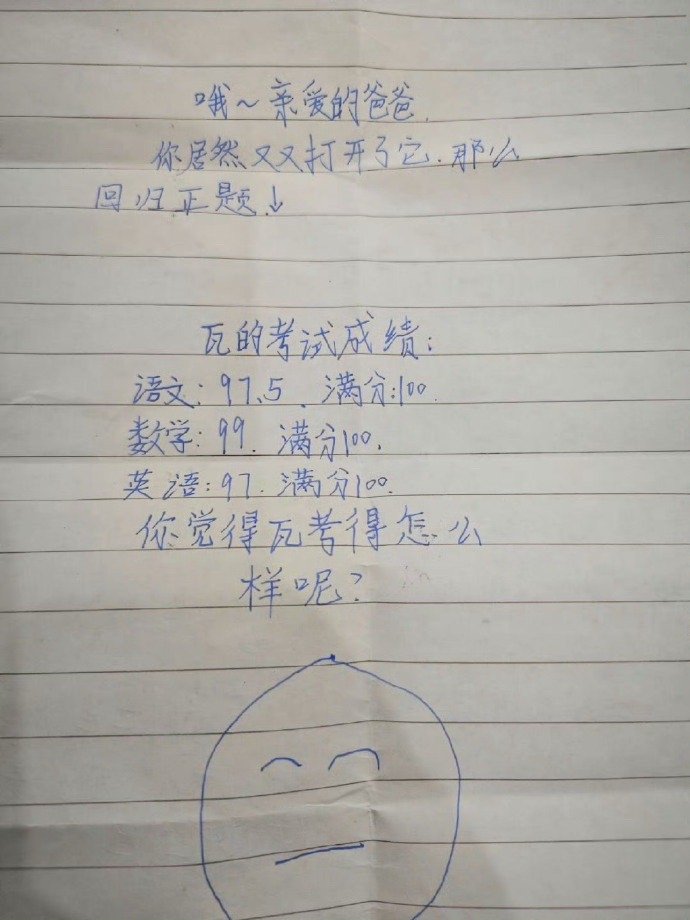 哦~亲爱的爸爸.
你居然又又打开了它.那么
回归正题↓
瓦的考试成绩:
语文:97.5.满分:100.
数学:99.满分100.
英语:97.满分100.
你觉得瓦考得怎么
样呢?